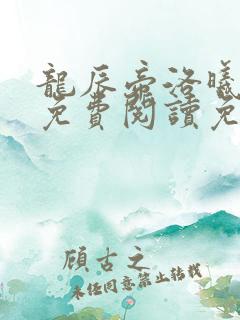 龍辰帝洛曦
免費閱讀免
顧古之
未經同意禁止轉載